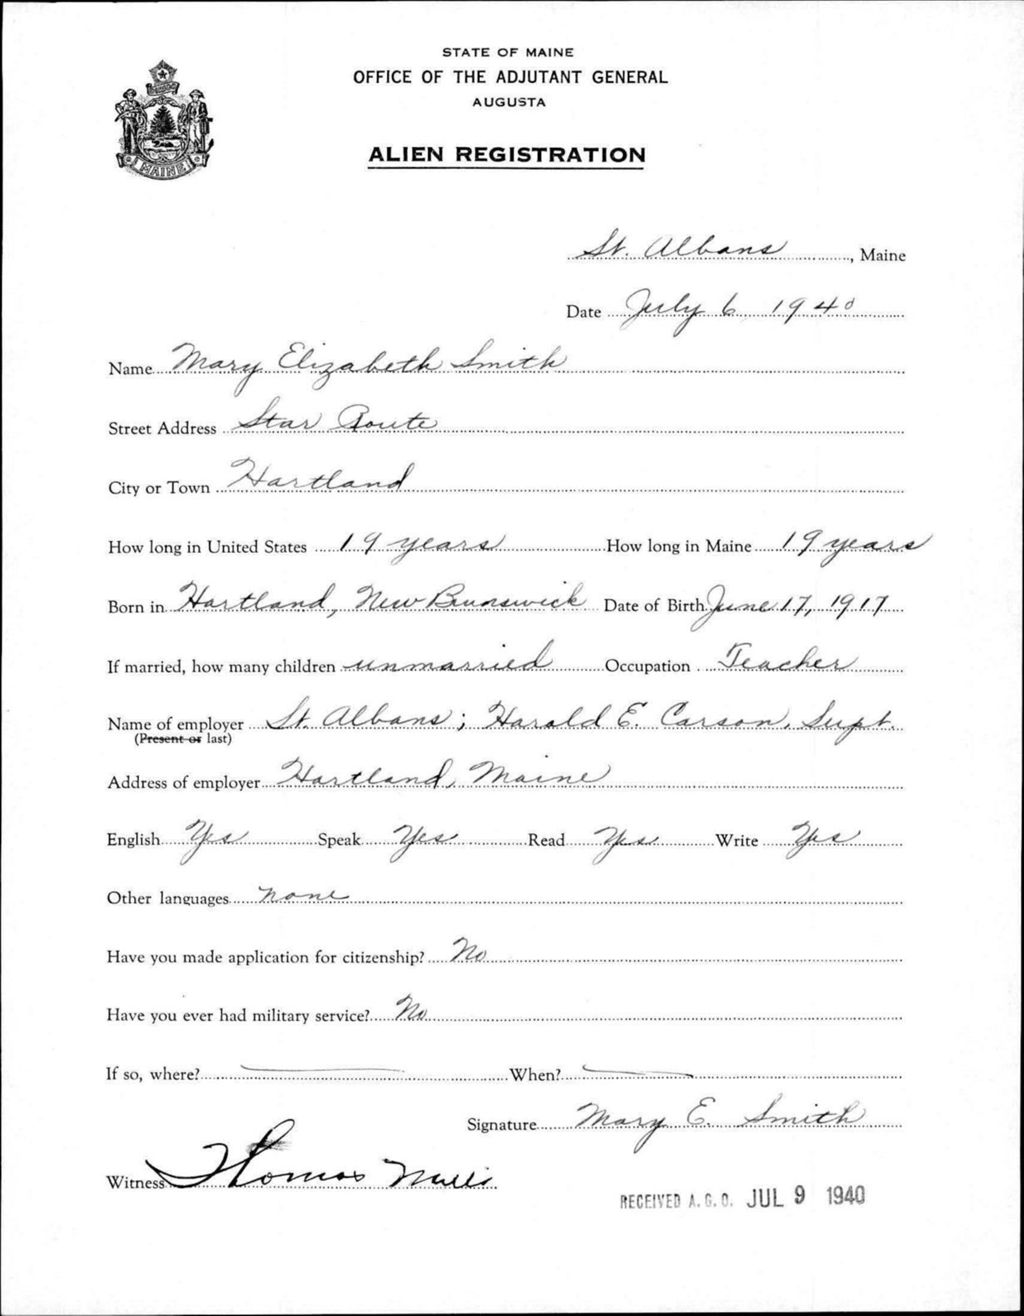 STATE OF MAINE
OFFICE OF THE ADJUTANT GENERAL
AUGUSTA
ALIEN REGISTRATION
MAINE
St. Albans, Maine
Date July 6, 1940
Name Mary Elizabeth Smith
Street Address Star Route
City or Town Hartland
How long in United States 19 years How long in Maine 19 years
Born in Hartland, New Brunswick Date of Birth June 17, 1917
If married, how many children unmarried Occupation Teacher
Name of employer St. Albans; Harold E. Carson, Supt.
(Present or last)
Address of employer Hartland, Maine
English Yes Speak Yes Read Yes Write Yes
Other languages none
Have you made application for citizenship? No
Have you ever had military service? No
If so, where? When?
Signature Mary E. Smith
Witness Thomas Mills
RECEIVED A.G.O. JUL 9 1940